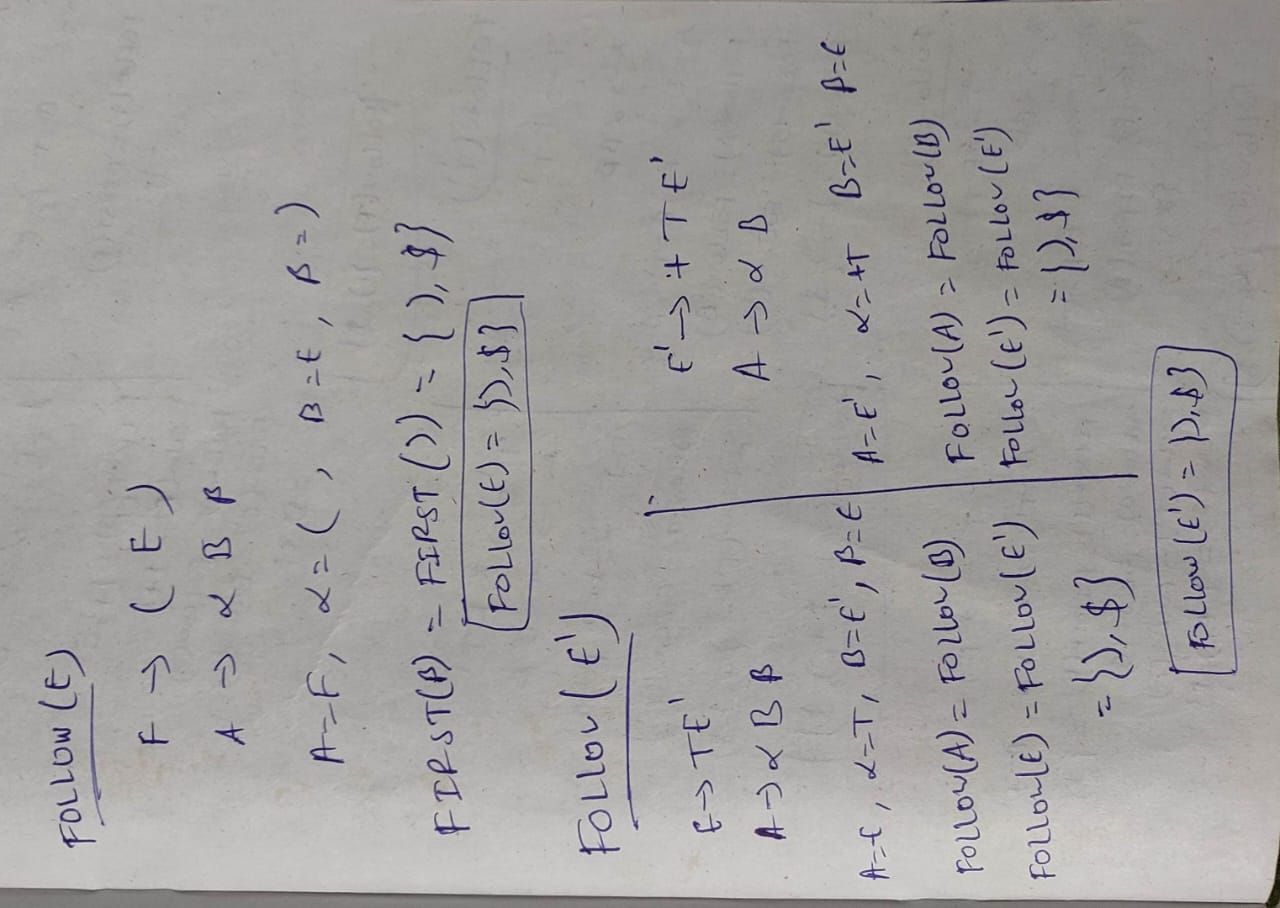 FOLLOW (E)
F → ( E )
A → α B β
A=F, α= ( , B=E, β= )
FIRST(β) = FIRST ( ) ) = { ), $}
FOLLOW(E) = {),$}
FOLLOW (E')
E → TE'
A → α B β
A=E, α=T, B=E', β=ϵ
FOLLOW(A) = FOLLOW(B)
FOLLOW(E) = FOLLOW(E')
= {),$}
E' → + T E'
A → α B
A=E', α=+T B=E' β=ϵ
FOLLOW(A) = FOLLOW(B)
FOLLOW(E') = FOLLOW(E')
= {),$}
FOLLOW(E') = {),$}